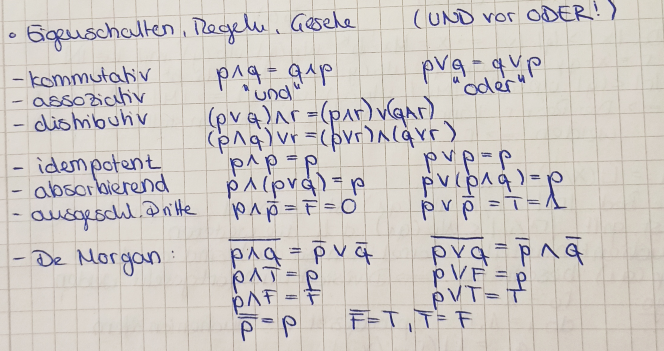 • Eigenschaften, Regeln, Gesetze (UND vor ODER!)
- kommutativ p∧q = q∧p p∨q = q∨p
- assoziativ "und" "oder"
- distributiv (p∨q)∧r = (p∧r)∨(q∧r)
(p∧q)∨r = (p∨r)∧(q∨r)
- idempotent p∧p = p p∨p = p
- absorbierend p∧(p∨q) = p p∨(p∧q) = p
- ausgeschl. Dritte p∧p̄ = F = 0 p∨p̄ = T = 1
- De Morgan: \overline{p∧q} = p̄ ∨ q̄ \overline{p∨q} = p̄ ∧ q̄
p∧T = p p∨F = p
p∧F = F p∨T = T
p̿ = p F̄ = T, T̄ = F